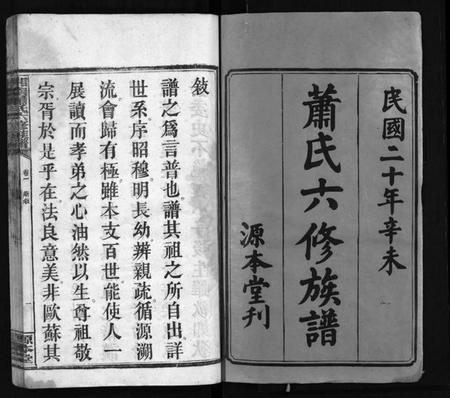 民國二十年辛未
蕭氏六修族譜
源本堂刊
敘
譜之為言普也譜其祖之所自出詳
世系序昭穆明長幼辨親疏循源溯
流會歸有極雖本支百世能使人一
展讀而孝弟之心油然以生尊祖敬
宗胥於是乎在法良意美非歐蘇其
卷一